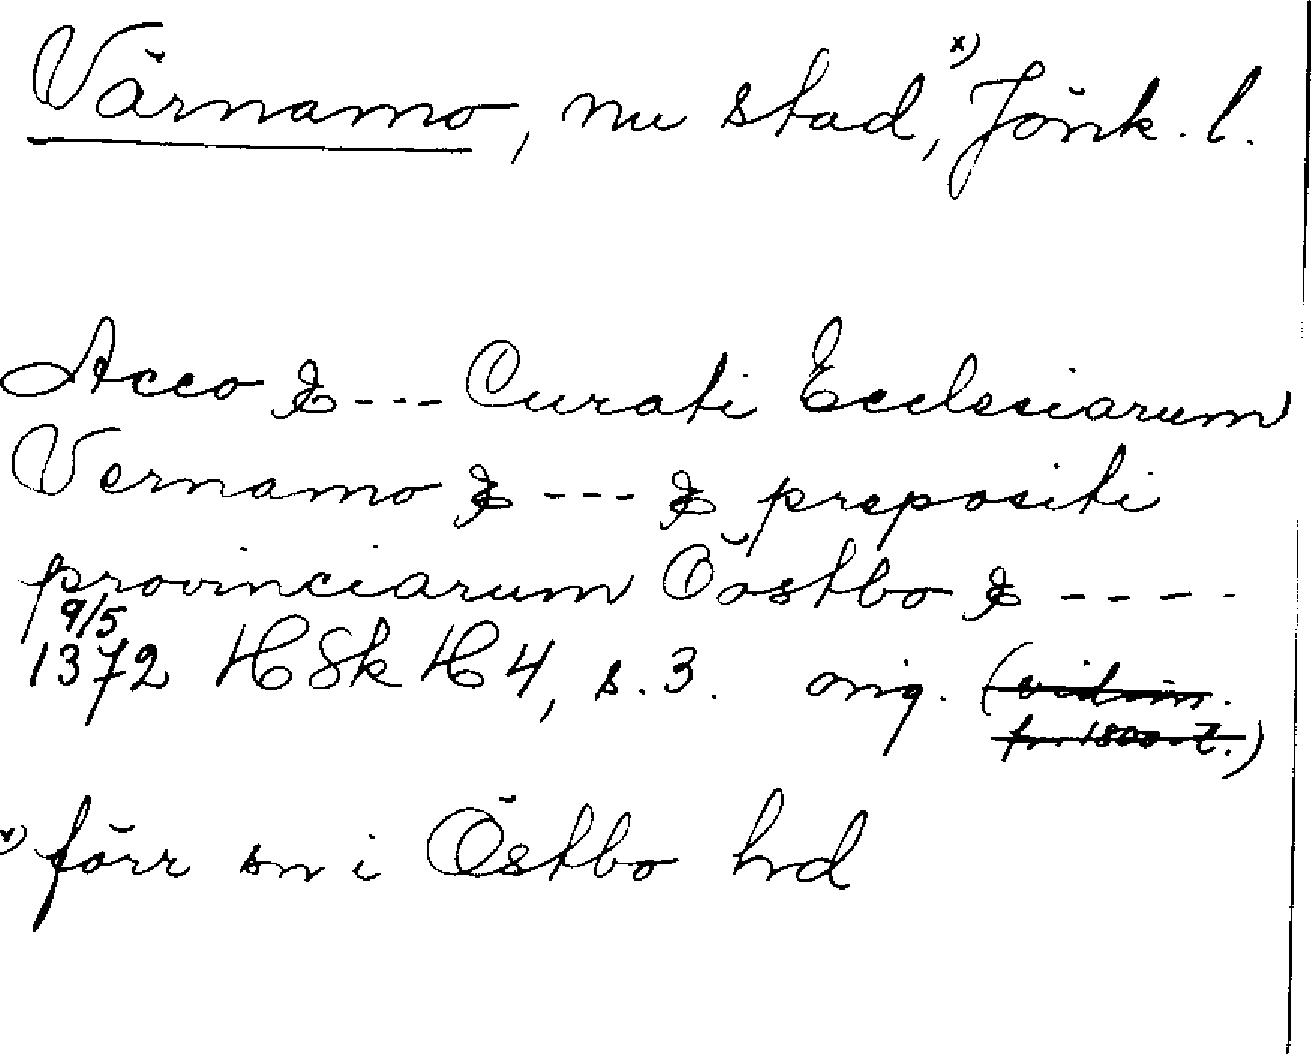 Värnamo, nu stad,x) Jönk. l.
Acco & --- Curati Ecclesiarum
Vernamo & --- & prepositi
provinciarum Öostbo & ----
9/5
1372 HSk H4, s. 3. orig. (vidim.
fr. 1800-t.)
x) förr sn i Östbo hd